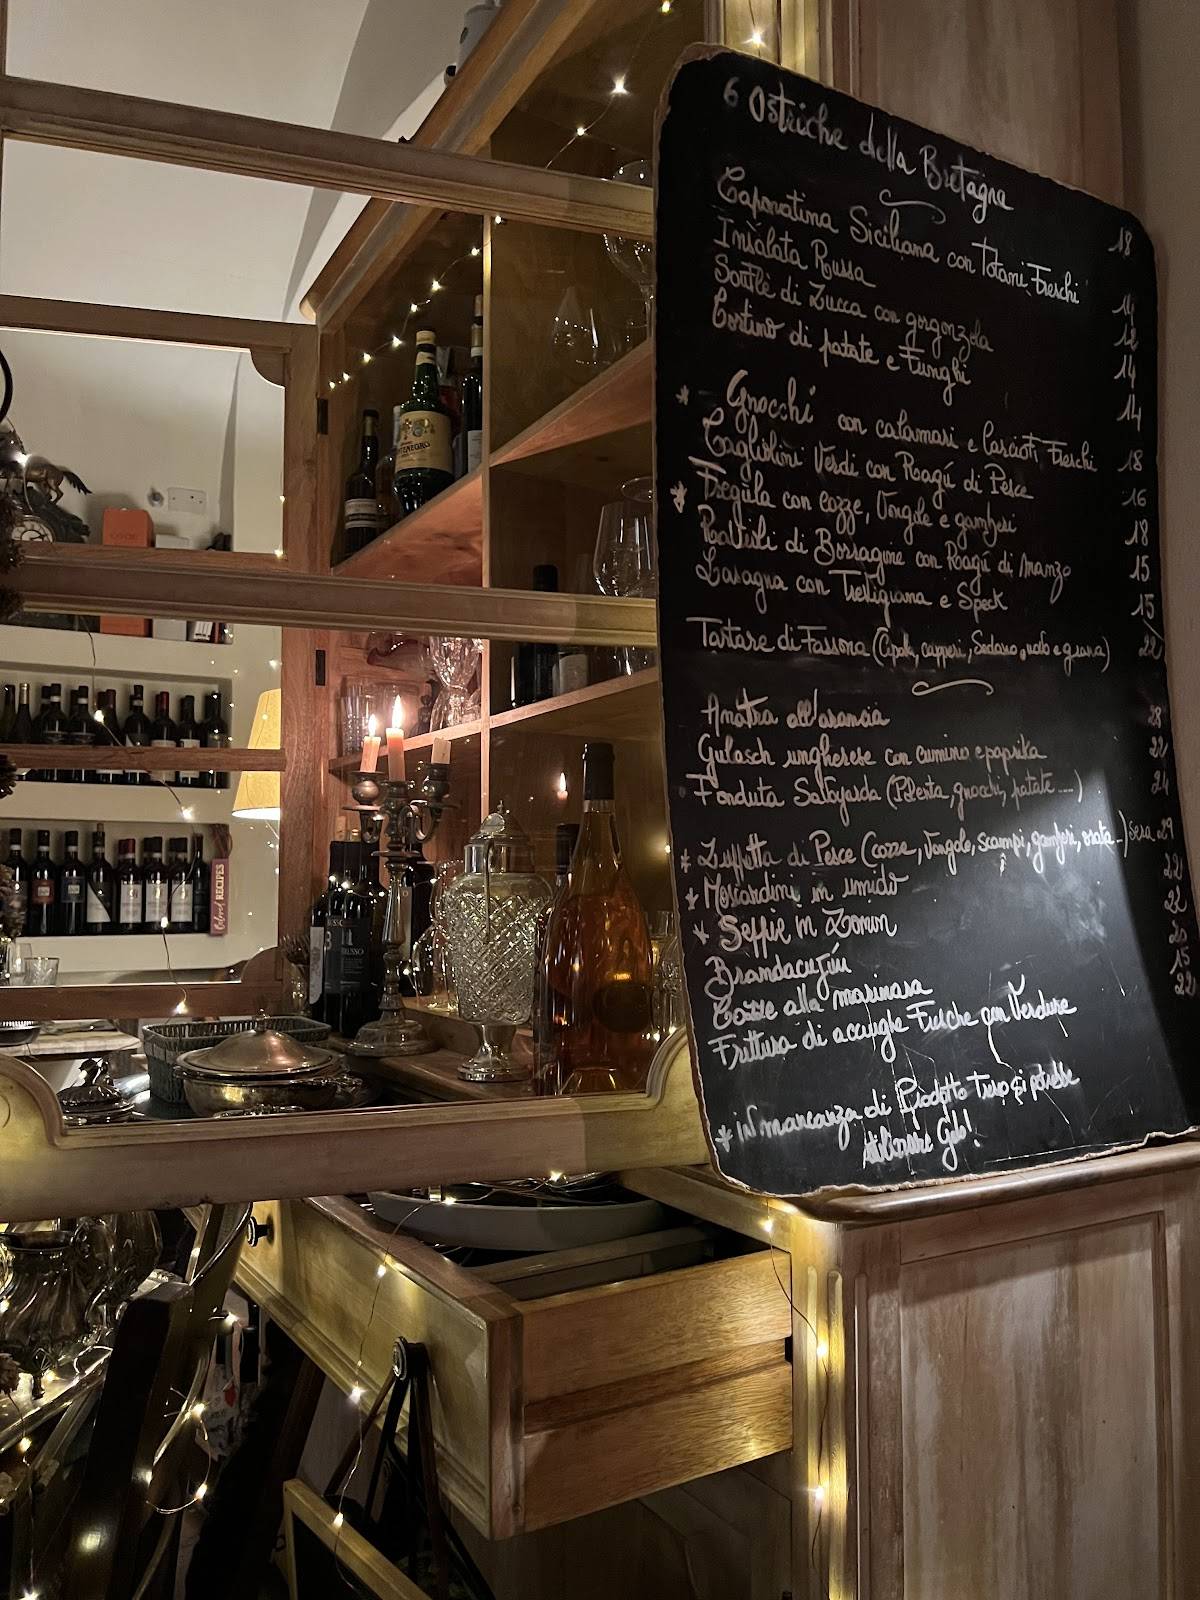 6 Ostriche della Bretagna 18
Caponatina Siciliana con Totani Freschi 14
Insalata Russa 12
Souflè di Zucca con gorgonzola 14
Tortino di patate e Funghi 14
* Gnocchi con calamari e Carciofi Freschi 18
Tagliolini Verdi con Ragú di Pesce 16
* Fregula con cozze, Vongole e gamberi 18
Ravioli di Borragine con Ragú di manzo 15
Lasagna con Trevigiana e Speck 15
Tartare di Fassona (Cipolla, capperi, Sedano, uovo e grana) 22
Anatra all'arancia 28
Gulasch ungherese con cumino e paprika 22
Fonduta Savoyarda (Polenta, gnocchi, patate ....) 24
* Zuppetta di Pesce (cozze, Vongole, scampi, gamberi, orata ..) 29
* Moscardini in umido 22
* Seppie in Zimin 22
Brandacujún 20
Cozze alla marinara 15
Frittura di acciughe Fresche con Verdure 22
* in mancanza di Prodotto Fresco si potrebbe
utilizzare Gelo!
MONTENEGRO
RECIPES